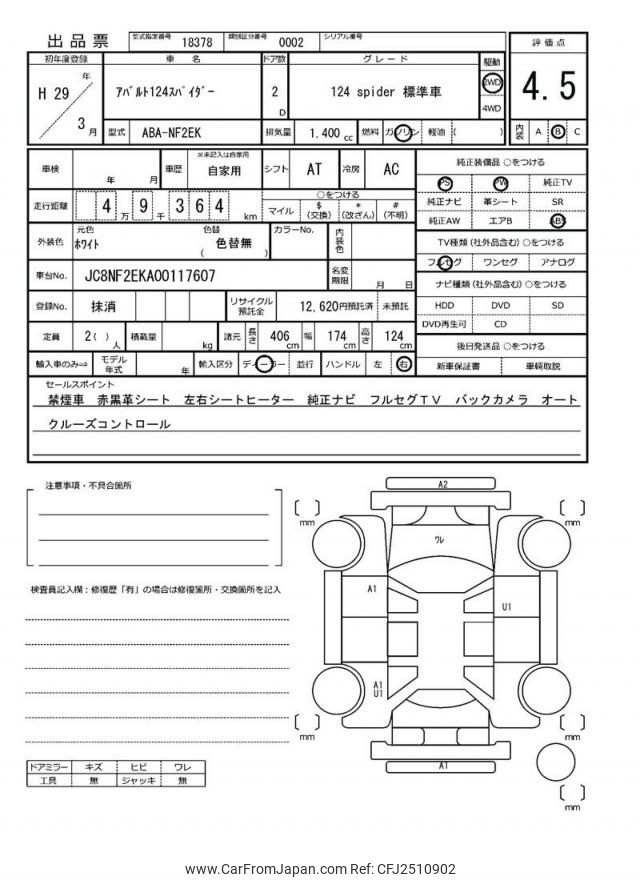 出品票 型式指定番号 18378 類別区分番号 0002 シリアル番号
初年度登録 車名 ドア数 グレード 駆動 評価点
H 29 年 3 月 アバルト124スパイダー 2 D 124 spider 標準車 2WD 4WD 4.5
型式 ABA-NF2EK 排気量 1,400 cc 燃料 ガソリン 軽油 ( ) 内装 A B C
車検 年 月 車歴 ※未記入は自家用 自家用 シフト AT 冷房 AC 純正装備品 ○をつける
PS PW 純正TV
走行距離 4 万 9 千 3 6 4 km ○をつける マイル $ (交換) * (改ざん) # (不明) 純正ナビ 革シート SR
純正AW エアB ABS
外装色 元色 ホワイト 色替 ( 色替無 ) カラーNo. 内装色 TV種類 (社外品含む) ○をつける
フルセグ ワンセグ アナログ
車台No. JC8NF2EKA00117607 名変期限 月 日 ナビ種類 (社外品含む) ○をつける
登録No. 抹消 リサイクル預託金 12,620円預託済 未預託 HDD DVD SD
DVD再生可 CD
定員 2( ) 人 積載量 kg 諸元 長さ 406 cm 幅 174 cm 高さ 124 cm 後日発送品 ○をつける
輸入車のみ⇒ モデル年式 年 輸入区分 ディーラー 並行 ハンドル 左 右 新車保証書 車輌取説
セールスポイント
禁煙車 赤黒革シート 左右シートヒーター 純正ナビ フルセグTV バックカメラ オート
クルーズコントロール
注意事項・不具合箇所
検査員記入欄：修復歴「有」の場合は修復箇所・交換箇所を記入
A2
mm
mm
ワレ
A1
U1
A1
U1
mm
mm
A1
mm
ドアミラー キズ ヒビ ワレ
工具 無 ジャッキ 無
www.CarFromJapan.com Ref: CFJ2510902